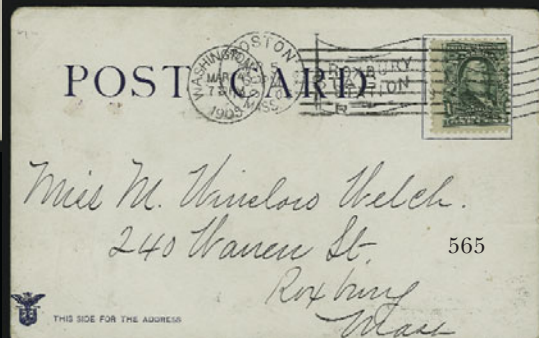 POST CARD
WASHINGTON
BOSTON
MAR
1905
MASS
ROXBURY
STATION
Miss M. Winslow Welch.
240 Warren St.
565
Roxbury
Mass
THIS SIDE FOR THE ADDRESS